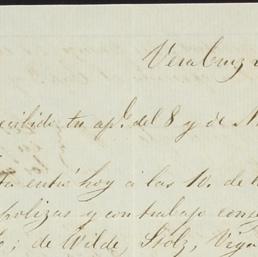 Veracruz
recibido tu apl. del 8 y de
entró hoy a las 10. de
polizas y con trabajo
; de Wilde, Stolz,